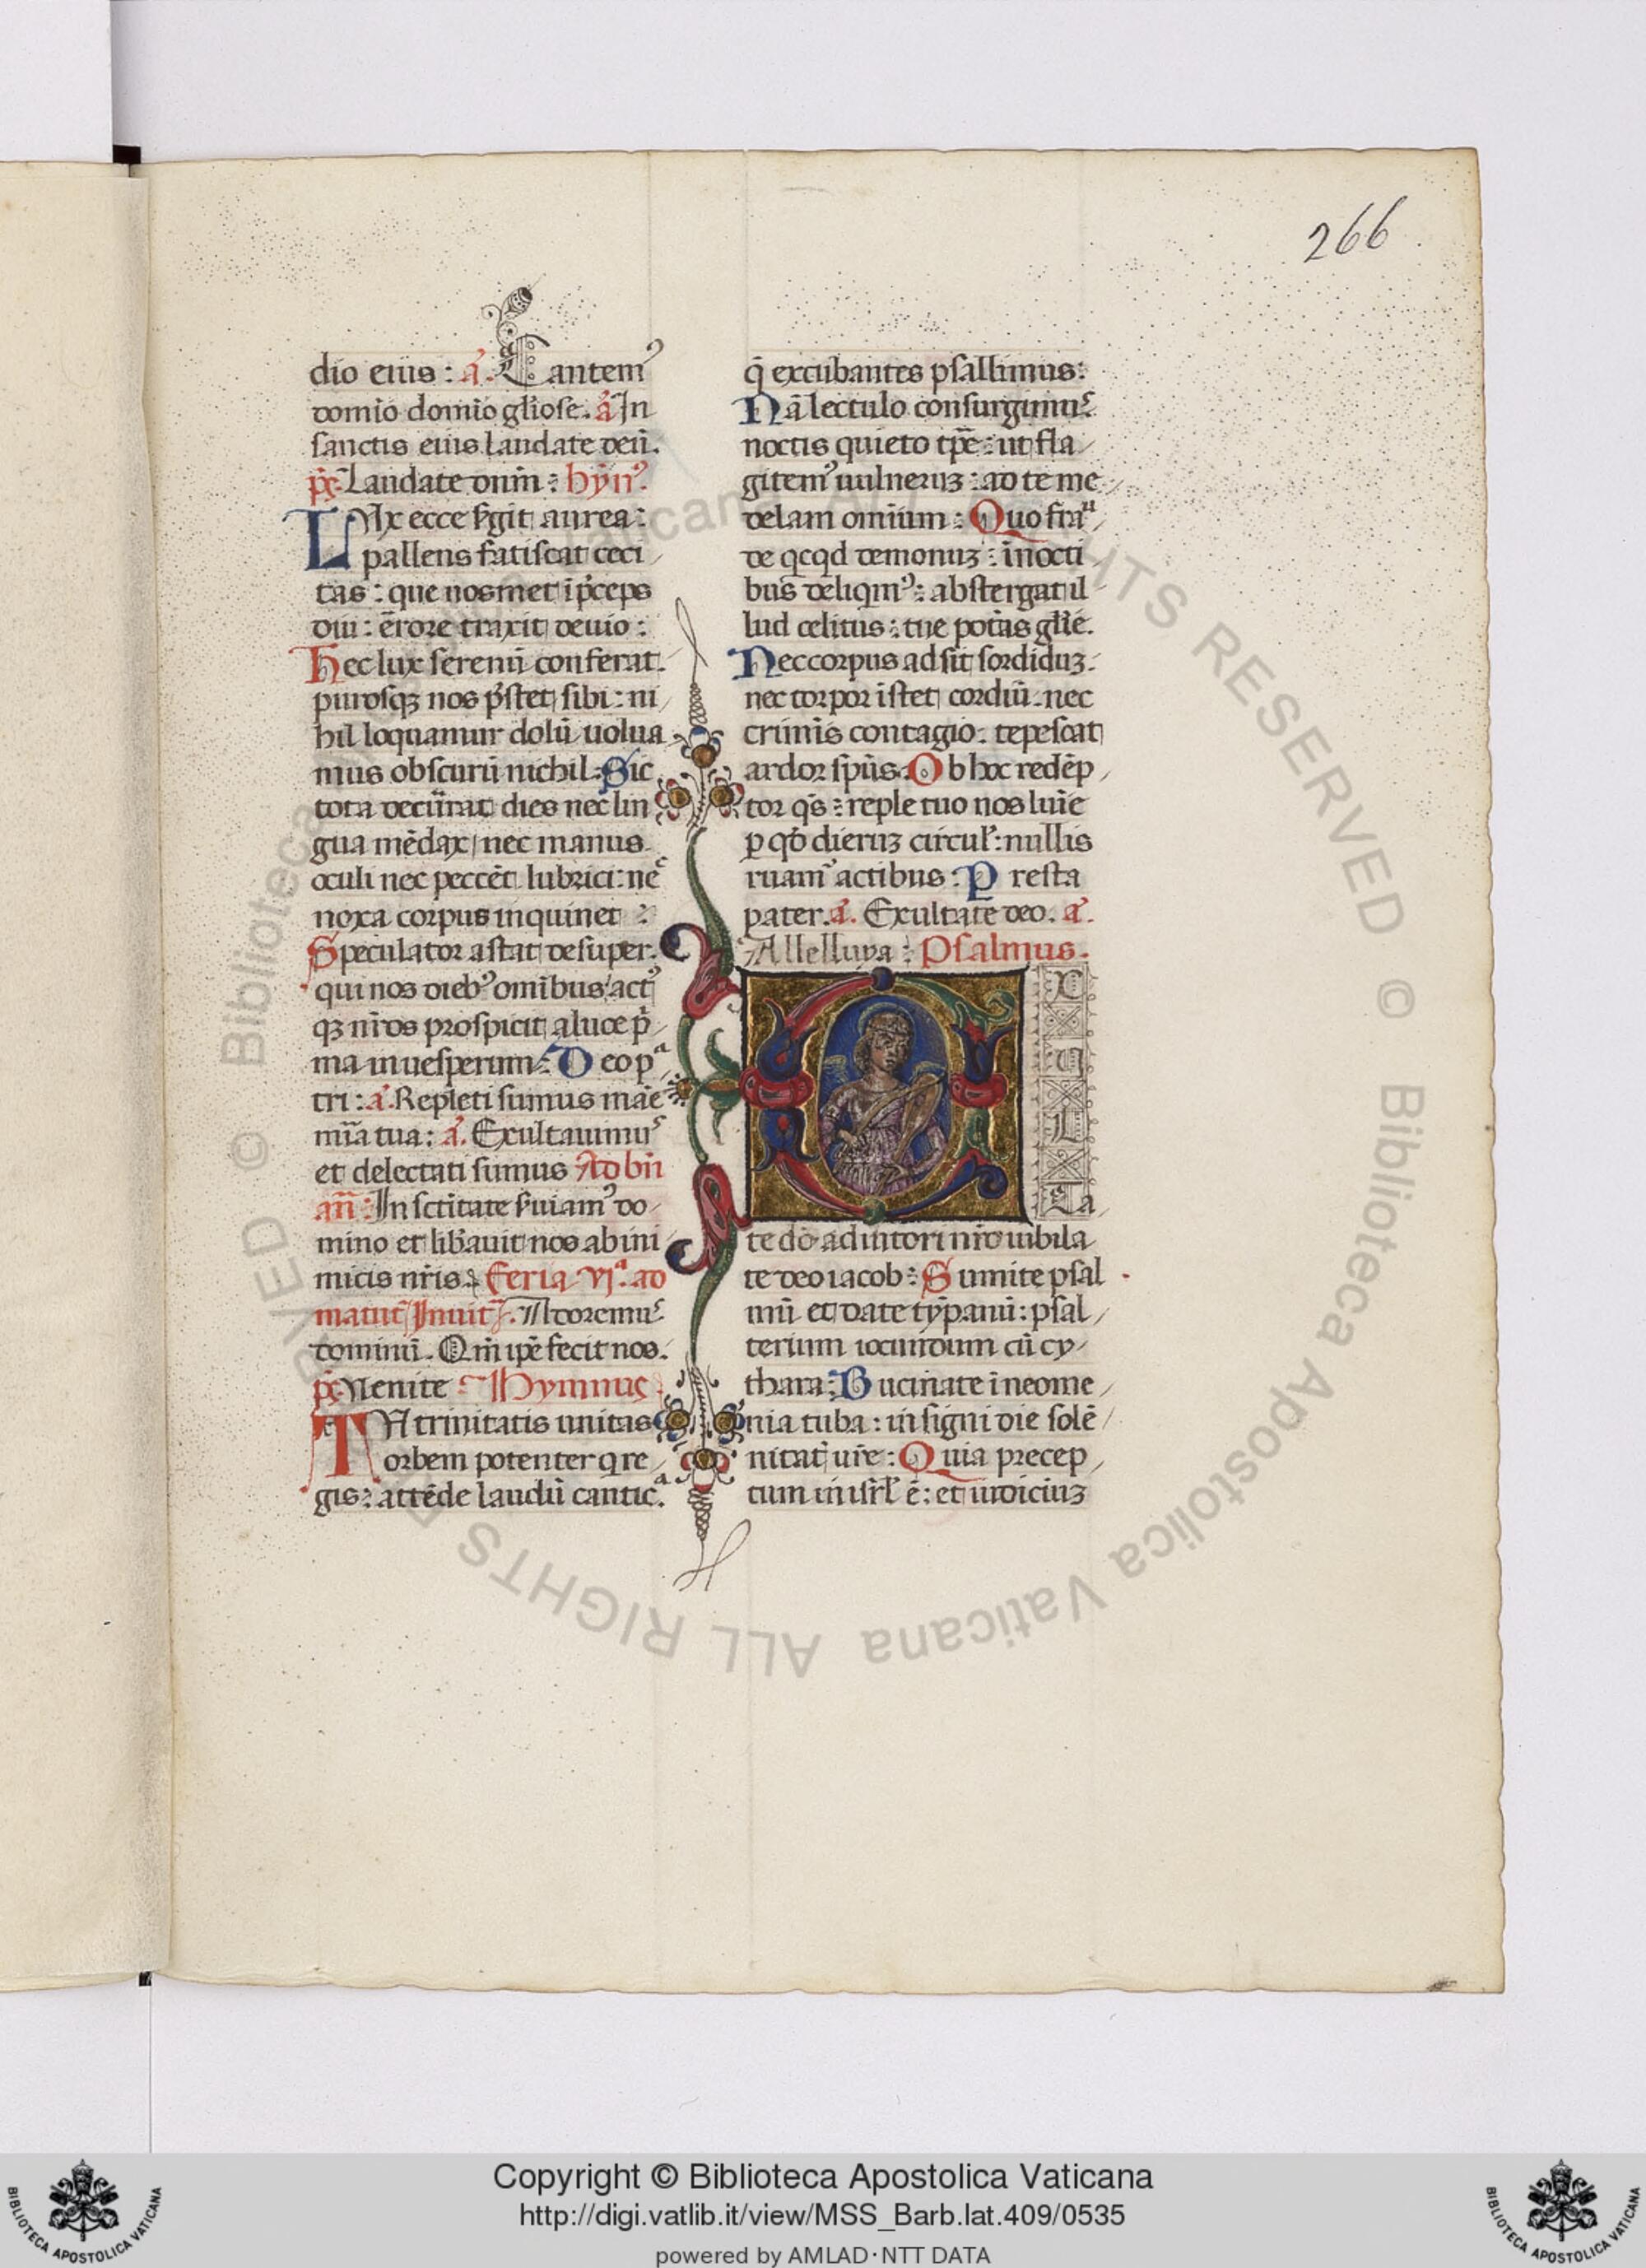 266
dio eius : a᷃. Cantem᷒
domio domio gl̄iose. a᷃ In
sanctis eius laudate deū.
p̄s. Laudate dnm̄ : hȳn᷒.
LUx ecce s̄git aurea :
pallens fatiscat ceci
tas : que nosmet ip̄ceps
diu : ērore traxit deuio :
Hec lux serenū conferat.
purosqꝫ nos p̄stet sibi : ni
hil loquamur dolū uolua
mus obscurū nichil : Sic
tota decūrat dies nec lin
gua mēdax nec manus.
oculi nec peccēt lubrici : ne᷎
noxa corpus inquinet :
Speculator astat desuper.
qui nos dieb᷒ omībus act᷒
qꝫ nr̄os prospicit a luce p̄
ma in uesperum : Deo pᵃ
tri : a᷃. Repleti sumus māe
mīa tua : a᷃. Exultauimu᷒
et delectati sumus Ad bn̄
an̄ : In sctītate s̄uiam᷒ do
mino et lib̄auit nos ab ini
micis nr̄is. Feria vjᵃ. ad
matut̄ Inuit̄. Adoremu᷒
dominū. Qm̄ ip̄e fecit nos.
p̄s. Uenite Hymnus
TU trinitatis unitas
orbem potenter q re
gis : attēde laudū cantic᷎ᵃ.
q̄ excubantes psallimus :
Nā lectulo consurgimu᷒
noctis quieto tp̄e : ut fla
gitem᷒ uulneruꝫ : ad te me
delam omīum : Quo fraᵘ
de qcqd demonuꝫ : ī nocti
bus deliqm᷒ : abstergat il
lud celitus : tue potās gl̄ie.
Nec corpus adsit sordiduꝫ.
nec torpor īstet cordiū. nec
crimīs contagio. tepescat
ardor spūs. Ob hoc redēp
tor qs̄ : reple tuo nos luīe
ꝑ qd̄ dieruꝫ circul̄ : nullis
ruam᷒ actibus : Presta
pater. a᷃. Exultate deo. a᷃.
Alleluya : Psalmus.
EXULTa
te dō adiutori nr̄o iubila
te deo iacob : Sumite psal
mū et date tȳpanū : psal
terium iocundum cū cy
thara : Bucinate ī neome
nia tuba : in signi die solē
nitat̄ ur̄e : Quia precep
tum in isrl̄ ē : et iudiciuꝫ
© Biblioteca Apostolica Vaticana ALL RIGHTS RESERVED © Biblioteca Apostolica Vaticana ALL RIGHTS RESERVED
Copyright © Biblioteca Apostolica Vaticana
http://digi.vatlib.it/view/MSS_Barb.lat.409/0535
powered by AMLAD·NTT DATA
BIBLIOTECA APOSTOLICA VATICANA
BIBLIOTECA APOSTOLICA VATICANA